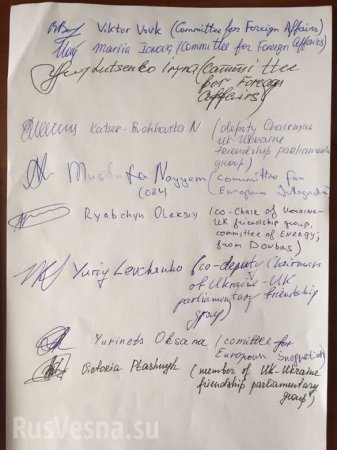 Viktor Vovk (Committee for Foreign Affairs)
Mariia Ionova (Committee for Foreign Affairs)
Lutsenko Iryna (Committee
for Foreign
Affairs)
Katser-Buchkovska N (deputy Chairman
UK-Ukraine
friendship parliamentary
group)
Mustafa Nayyem (committee for
European Integration
Ryabchyn Oleksiy (co-chair of Ukraine-
UK friendship group,
committee of Energy,
from Donbas)
Yuriy Levchenko (co-deputy Chairman
of Ukraine-UK
parliamentary friendship
group)
Yurinets Oksana (comittee for
European Integration)
Victoria Ptashnyk (member of UK-Ukraine
friendship parliamentary
group)
RusVesna.su